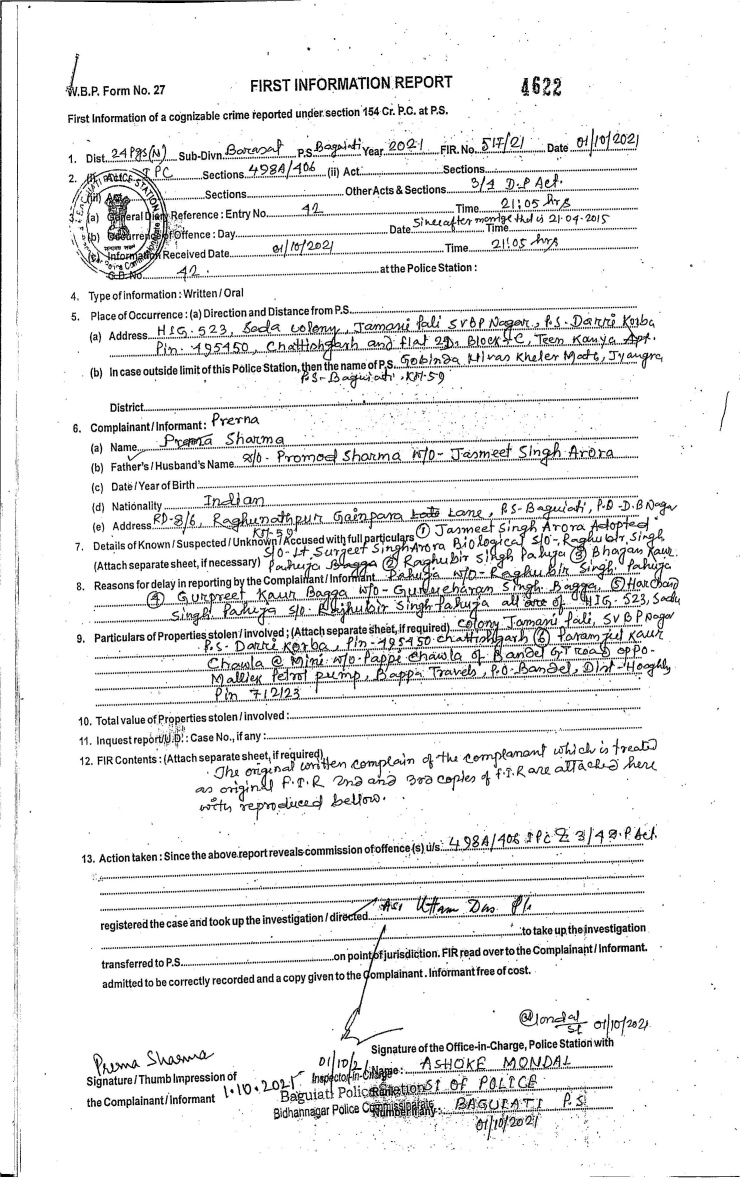 W.B.P. Form No. 27
FIRST INFORMATION REPORT
4622
First Information of a cognizable crime reported under section 154 Cr. P.C. at P.S.
1. Dist. 24 Pgs(N) Sub-Divn. Barasat P.S. Baguiati Year 2021 FIR. No. 517/21 Date 01/10/2021
2. (i) Act IPC Sections 498A/406 (ii) Act Sections
(iii) Act Sections Other Acts & Sections 3/4 D.P Act.
(a) General Diary Reference : Entry No. 42 Time 21:05 hrs
(b) Occurrence of Offence : Day Date Since after marrige that is 21-04-2015 Time
(c) Information Received Date 01/10/2021 Time 21:05 hrs
G.D. No. 42. at the Police Station :
4. Type of information : Written / Oral
5. Place of Occurrence : (a) Direction and Distance from P.S.
(a) Address HIG-523, Sada colony, Jamani Pali SVBP Nagar, P.S- Darri Korba
Pin- 495450, Chattishgarh and flat 2D, Block-C, Teen Kanya Apt.
(b) In case outside limit of this Police Station, then the name of P.S. Gobinda Nivas Kheler Math, Jyangra
P.S- Baguiati, Kol-59
District
6. Complainant / Informant : Prerna
(a) Name Prerna Sharma
(b) Father's / Husband's Name D/O- Promod Sharma W/O- Jasmeet Singh Arora
(c) Date / Year of Birth
(d) Nationality Indian
(e) Address RD-8/6, Raghunathpur Gainpara Lane, P.S- Baguiati, P.O- D.B Nagar
Kol-59
7. Details of Known / Suspected / Unknown / Accused with full particulars (1) Jasmeet Singh Arora Adopted
S/O- Lt Surjeet Singh Arora Biological S/O- Raghubir Singh
(Attach separate sheet, if necessary) Pahuja (2) Raghubir Singh Pahuja (3) Bhagan Kaur
8. Reasons for delay in reporting by the Complainant / Informant Pahuja W/O- Raghubir Singh Pahuja
(4) Gurpreet Kaur Bagga W/O- Gurucharan Singh Bagga, (5) Harchand
Singh Pahuja S/O- Raghubir Singh Pahuja all are of HIG-523, Sada
9. Particulars of Properties stolen / involved ; (Attach separate sheet, if required) colony Jamani Pali, SVBP Nagar
P.S- Darri Korba, Pin-495450 chattishgarh (6) Paramjit Kaur
Chawla @ Mini W/O- Pappi Chawla of Bandel G.T Road oppo-
Mallick Petrol pump, Bappa Travels, P.O- Bandel, Dist- Hooghly
Pin 712123
10. Total value of Properties stolen / involved :
11. Inquest report / U.D. : Case No., if any :
12. FIR Contents : (Attach separate sheet, if required)
The original written complain of the complanant which is treated
as original F.I.R 2nd and 3rd copies of F.I.R are attached here
with reproduced bellow.
13. Action taken : Since the above report reveals commission of offence (s) u/s : 498A/406 IPC & 3/4 D.P Act.
registered the case and took up the investigation / directed ASI Uttam Das
to take up the investigation
transferred to P.S. on point of jurisdiction. FIR read over to the Complainant / Informant.
admitted to be correctly recorded and a copy given to the Complainant . Informant free of cost.
Mondal
SI 01/10/2021
Signature of the Office-in-Charge, Police Station with
Prerna Sharma
Signature / Thumb Impression of
the Complainant / Informant 1.10.2021
01/10/21
Inspector-in-Charge
Baguiati Police Station
Bidhannagar Police Commissionerate
Name : ASHOKE MONDAL
Rank : SI OF POLICE
Number if any : BAGUIATI P.S
01/10/2021